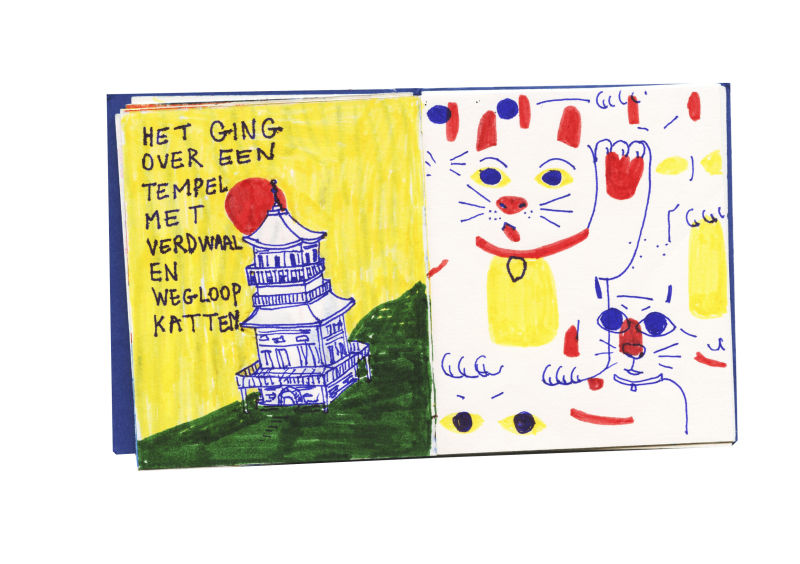 HET GING
OVER EEN
TEMPEL
MET
VERDWAAL
EN
WEGLOOP
KATTEN